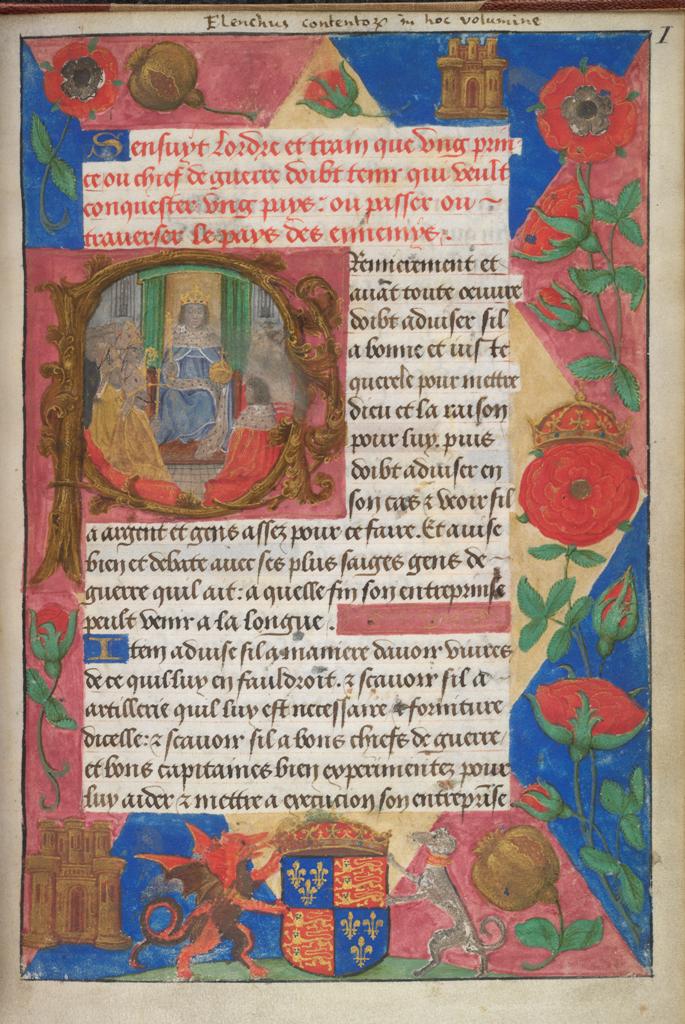 Elenchus contentoꝝ in hoc volumine
1
Sensuyt Lordre et train que vng prin-
ce ou chief de guerre doibt tenir qui veult
conquester vng pays: ou passer ou ~
trauerser le pays des ennemys.
Premierement et
auãt toute oeuure
doibt aduiser sil
a bonne et iuste
querele pour mettre
dieu et la raison
pour luy. puis
doibt aduiser en
son cas ⁊ veoir sil
a argent et gens assez pour ce faire. Et auise
bien et debate auec ses plus saiges gens de
guerre quil ait: a quelle fin son entreprinse
peult venir a la longue.
Item aduise sil a maniere dauoir viures
de ce quil luy en fauldroit. ⁊ scauoir sil a
artillerie quil luy est necessaire ⁊ forniture
dicelle: ⁊ scauoir sil a bons chiefs de guerre
et bons capitaines bien experimentez pour
luy aider ⁊ mettre a execucion son entreprĩse.